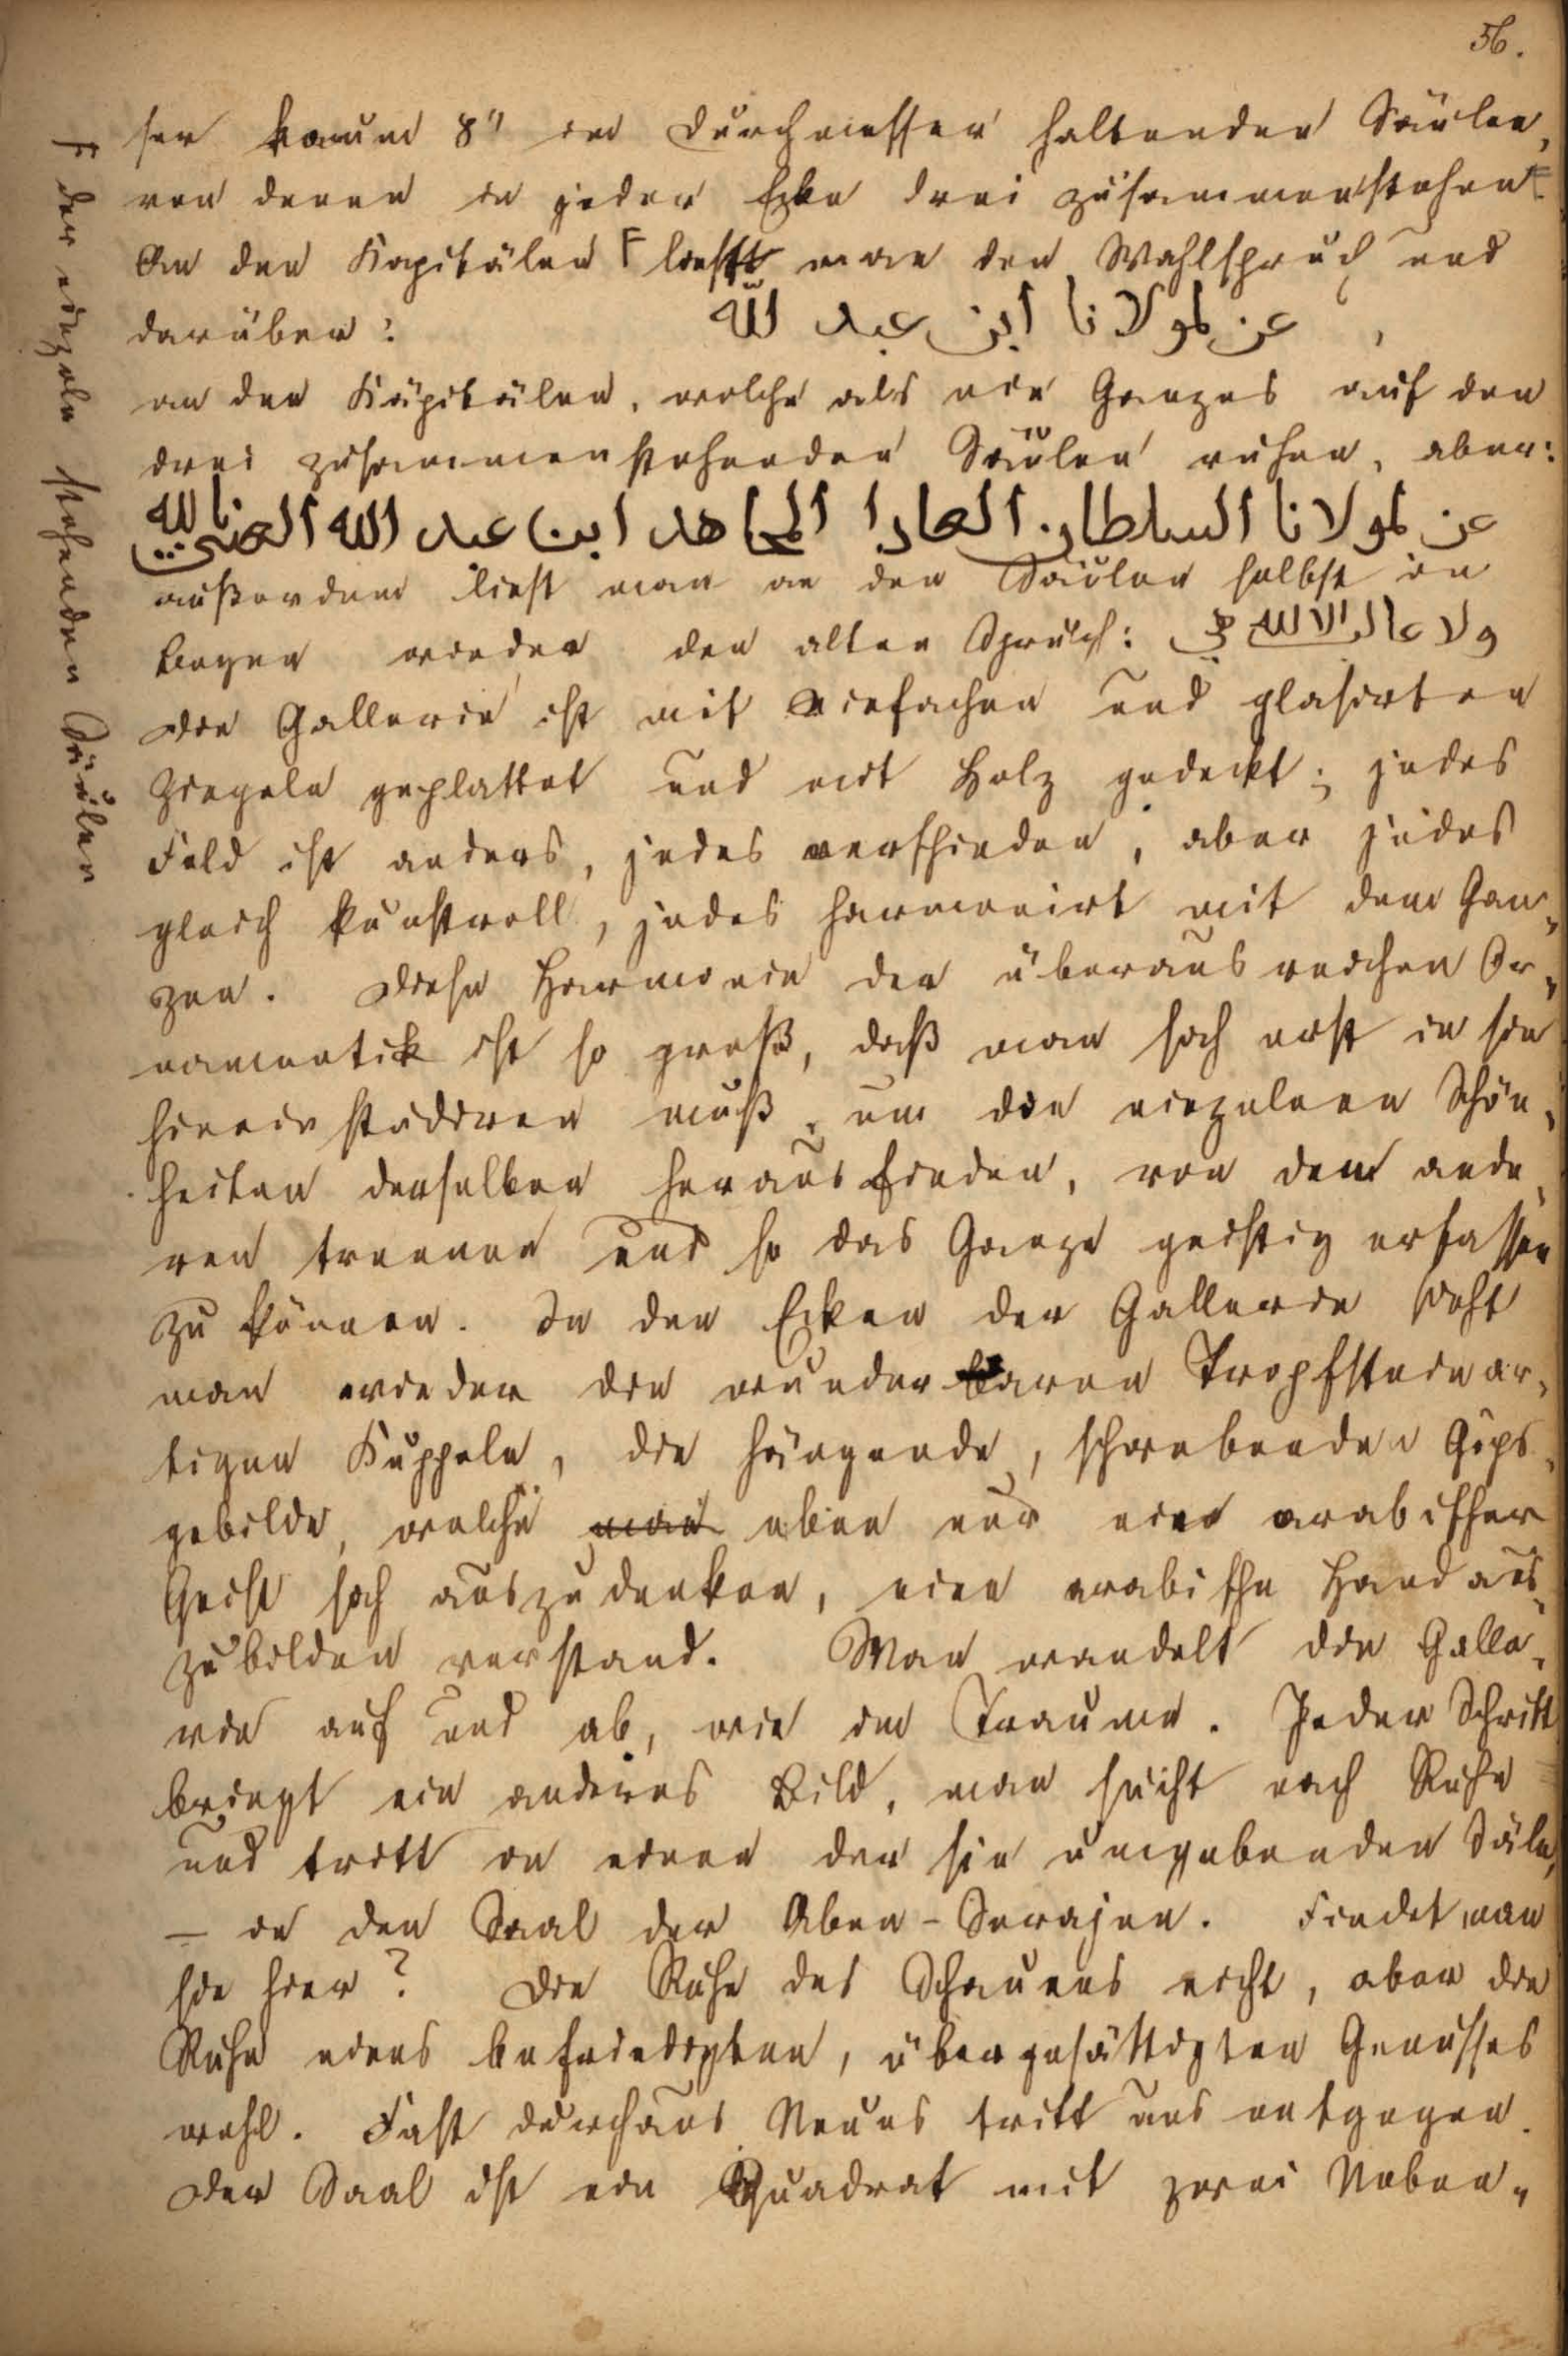 56.
ser kaum 8" im Durchmesser haltenden Säulen,
von denen in jeder Ecke drei zusammenstehen.
An den Kapitälen F liest man den Wahlspruch und
darüber: عز لمولانا ابن عبد الله ,
an den Kapitälen, welche als ein Ganzes auf den
drei zusammenstehenden Säulen ruhen, aber:
عز لمولانا السلطان العادا المجاهد ابن عبد الله الغنى بالله
außerdem liest man an den Säulen selbst in
Bogen wieder den alten Spruch: ولا غالب الا الله
Die Gallerie ist mit einfachen und glasirten
Ziegeln geplattet und mit Holz gedeckt; jedes
Feld ist anders, jedes verschieden, aber jedes
gleich kunstvoll, jedes harmonirt mit dem Gan-
zen. Diese Harmonie der überaus reichen Or-
namentik ist so groß, daß man sich erst in sie
hinein studiren muß, um die einzelnen Schön-
heiten derselben herausfinden, von dem ande-
ren trennen und so das Ganze geistig erfassen
zu können. In den Ecken der Gallerie sieht
man wieder die wunderbaren Tropfsteinar-
tigen Kuppeln, die hängende, schwebenden Gips-
gebilde, welche man eben nur ein arabischer
Geist sich auszudenken, eine arabische Hand aus-
zubilden verstand. Man wandelt die Galle-
rie auf und ab, wie im Traume. Jeder Schritt
bringt ein anderes Bild, man sucht nach Ruhe
und tritt in einen der sie umgebenden Säle,
– in den Saal der Aben-Serajen. Findet man
sie hier? Die Ruhe des Schauens nicht, aber die
Ruhe eines befriedigten, übergesättigten Genusses
wohl. Fast durchaus Neues tritt uns entgegen.
Der Saal ist ein Quadrat mit zwei Neben-
F der einzeln stehenden Säulen